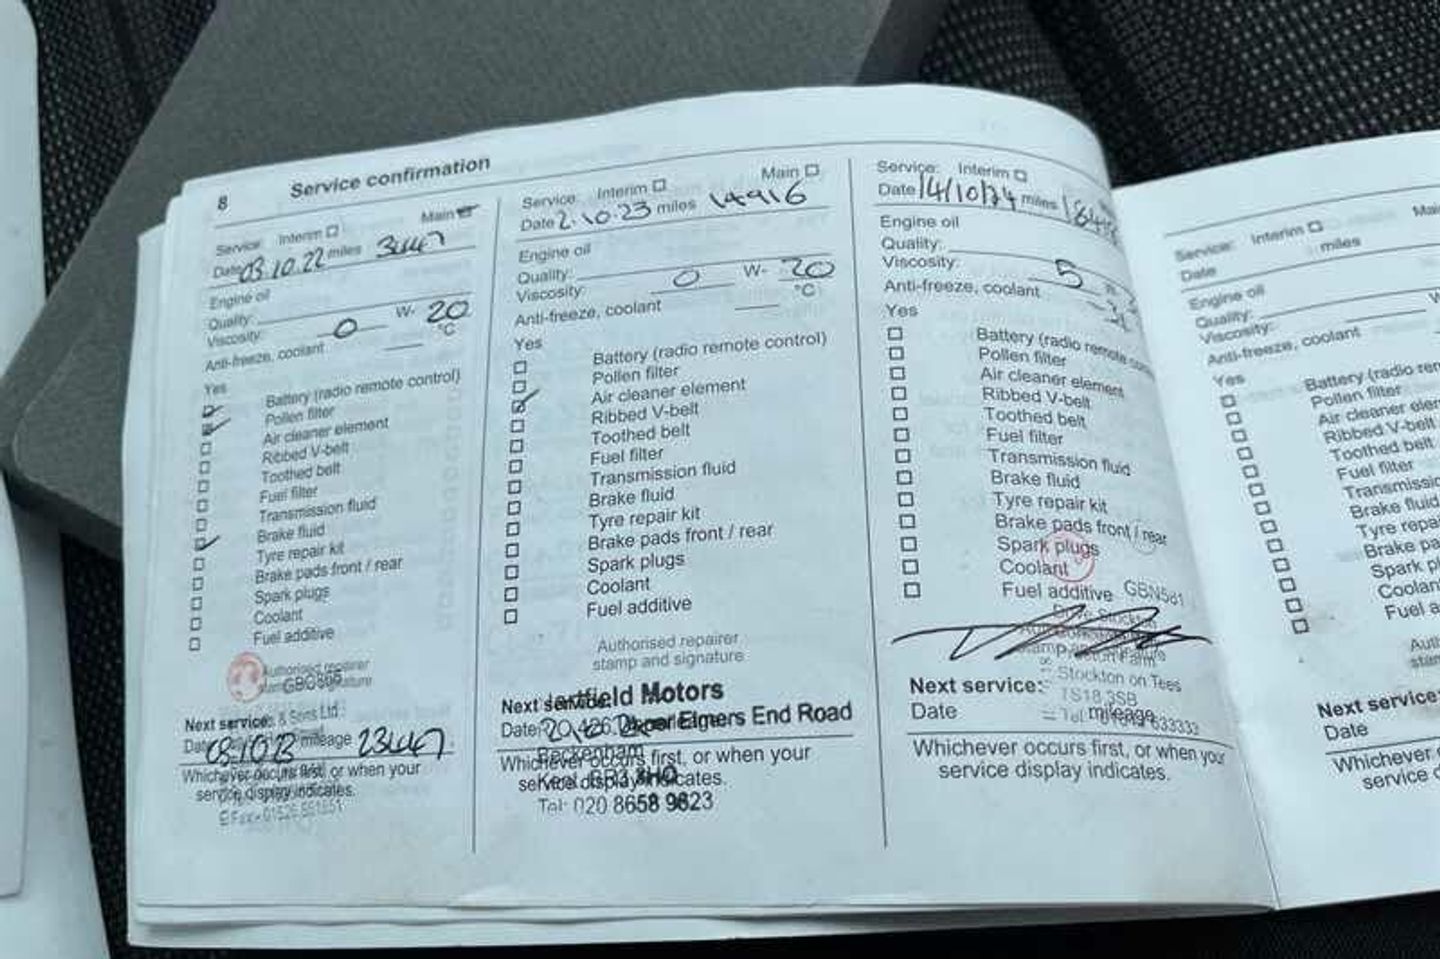 8
Service confirmation
Service: Interim Main
Date 03.10.22 miles
Engine oil
Quality:
Viscosity: 0 W- 20
Anti-freeze, coolant °C
Yes
Battery (radio remote control)
Pollen filter
Air cleaner element
Ribbed V-belt
Toothed belt
Fuel filter
Transmission fluid
Brake fluid
Tyre repair kit
Brake pads front / rear
Spark plugs
Coolant
Fuel additive
Authorised repairer
stamp and signature
& Sons Ltd
Next service:
Date 03.10.23 mileage 23447
Whichever occurs first, or when your
service display indicates.
Service: Interim Main
Date 2.10.23 miles 14916
Engine oil
Quality:
Viscosity: 0 W- 20
Anti-freeze, coolant °C
Yes
Battery (radio remote control)
Pollen filter
Air cleaner element
Ribbed V-belt
Toothed belt
Fuel filter
Transmission fluid
Brake fluid
Tyre repair kit
Brake pads front / rear
Spark plugs
Coolant
Fuel additive
Authorised repairer
stamp and signature
Motors
Next service:
Date: Elmers End Road
Beckenham
Whichever occurs first, or when your
Kent
service display indicates.
Tel: 020 8658 9823
Service: Interim
Date 14/10/24 miles
Engine oil
Quality:
Viscosity: 5
Anti-freeze, coolant
Yes
Battery (radio remote
Pollen filter
Air cleaner element
Ribbed V-belt
Toothed belt
Fuel filter
Transmission fluid
Brake fluid
Tyre repair kit
Brake pads front / rear
Spark plugs
Coolant
Fuel additive GBN581
Stockton on Tees
Next service: TS18 3SB
Date mileage
Whichever occurs first, or when your
service display indicates.
Service: Interim
Date miles
Engine oil
Quality:
Viscosity:
Anti-freeze, coolant
Yes
Battery (radio
Pollen filter
Air cleaner
Ribbed V-belt
Toothed belt
Fuel filter
Brake fluid
Next service:
Date
Whichever